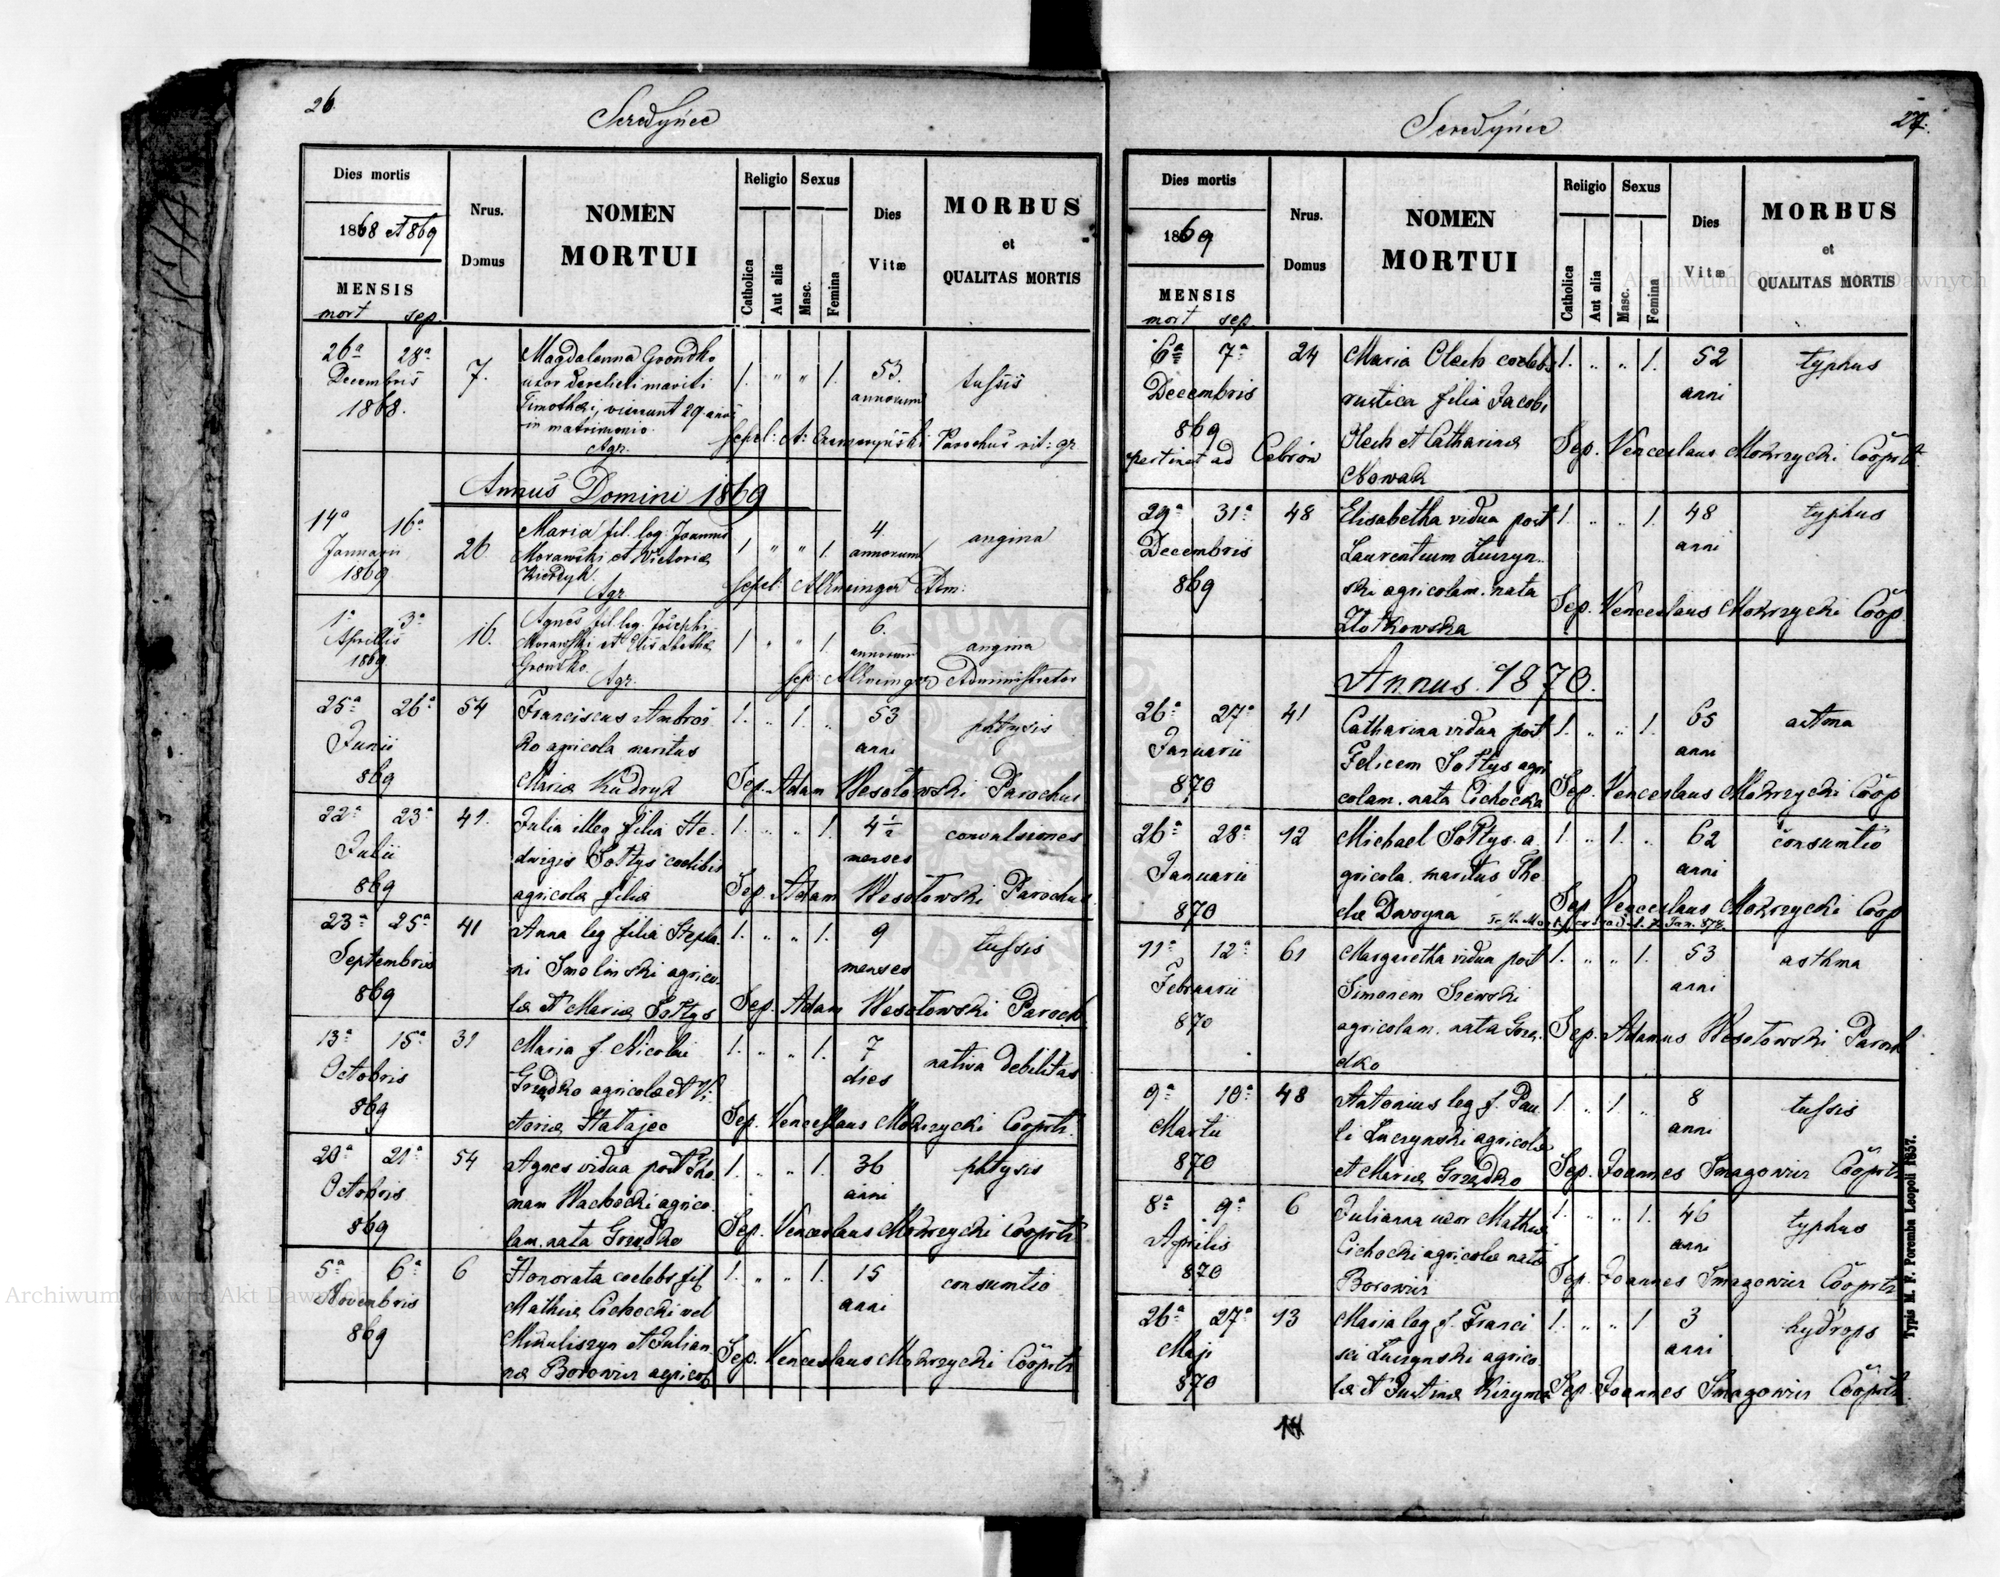 26.
Seredyńce
Dies mortis
1868 et 869
MENSIS
mort sep.
Nrus.
Domus
NOMEN
MORTUI
Religio
Catholica
Aut alia
Sexus
Masc.
Femina
Dies
Vitæ
MORBUS
et
QUALITAS MORTIS
26a 28a 7. Magdalenna Grondko 1. " " 1. 53. tussis
Decembris uxor derelicti mariti annorum
1868. Timothei, vixerunt 29 anis
in matrimonio.
Agr. sepel: A: Parochus rit: gr
Annus Domini 1869
14a 16a 26. Maria fil. leg. Joannis 1 " " 1. 4. angina
Januarii Morawski et Victoriæ annorum
1869 Agr sepel Alkneinger Adm:
1a 3a 16. Agnes fil leg. Josephi 1 " " 1. 6. angina
Aprillis Morawski et Elisabethæ annorum
1869 Grondko. Agr. sep: Alkneinger Administrator
25a 26a 54 Franciscus Ambroś 1. " 1. " 53 phtysis
Junii ko agricola maritus anni
869 Mariæ Kudryk Sep. Adam Wesołowski Parochus
22a 23a 41. Julia illeg filia He- 1. " " 1. 4½ convulsiones
Julii dwigis Sołtys coelibis menses
869 agricolæ filiæ Sep. Adam Wesołowski Parochus
23a 25a 41 Anna leg filia Stepha- 1. " " 1. 9 tussis
Septembris ni Smolinski agrico- menses
869 læ et Mariæ Sołtys Sep. Adam Wesołowski Paroch.
13a 15a 31 Maria f. Nicolai 1. " " 1. 7 nativa debilitas
Octobris Grządko agricolæ et Vi- dies
869 ctoriæ Hatajec Sep. Venceslaus Mokrzycki Cooprtr.
20a 21a 54 Agnes vidua post Tho- 1. " " 1. 36 phtysis
Octobris mam Wachocki agrico- anni
869 lam. nata Grządko Sep. Venceslaus Mokrzycki Cooprtr
5a 6a 6 Honorata coelebs fil 1. " " 1. 15 consumtio
Novembris Mathiæ Cichocki vel anni
869 Mikuliszyn et Julian-
næ Borowicz agricol Sep. Venceslaus Mokrzycki Cooprtr
Seredyńce
27.
Dies mortis
1869
MENSIS
mort sep
Nrus.
Domus
NOMEN
MORTUI
Religio
Catholica
Aut alia
Sexus
Masc.
Femina
Dies
Vitæ
MORBUS
et
QUALITAS MORTIS
6a 7a 24 Maria Olech coelebs 1. " " 1. 52 typhus
Decembris rustica filia Jacobi anni
869 Olech et Catharinæ Sep. Venceslaus Mokrzycki Cooprtr.
pertinet ad Cebrów Nowak
29a 31a 48 Elisabetha vidua post 1. " " 1. 48 typhus
Decembris Laurentium Luczyn- anni
869 ski agricolam. nata Sep. Venceslaus Mokrzycki Coop.
Złotkowska
Annus. 1870.
26a 27a 41 Catharina vidua post 1. " " 1. 65 astma
Januarii Felicem Sołtys agri anni
870 colam. nata Cichocka Sep. Venceslaus Mokrzycki Coop
26a 28a 12 Michael Sołtys. a- 1. " 1. " 62 consumtio
Januarii gricola. maritus The- anni
870 clæ Dworzna Sep Venceslaus Mokrzycki Coop
11a 12a 61 Margaretha vidua post 1. " " 1. 53 asthma
Februarii Simonem anni
870 agricolam. nata Grzą- Sep. Adamus Wesołowski Paroch
dko
9a 10a 48 Antonius leg f. Pau- 1. " 1. " 8 tussis
Martii li Luczynski agricolæ anni
870 et Mariæ Grządko Sep. Joannes Smagowicz Cooprtr
8a 9a 6 Julianna uxor Mathiæ 1. " " 1. 46 typhus
Aprilis Cichocki agricolæ nata anni
870 Borowicz Sep. Joannes Smagowicz Cooprtr
26a 27a 13 Maria leg. f. Franci 1. " " 1 3 hydrops
Maji sci Luczynski agrico- anni
870 læ et Justinæ Sep. Joannes Smagowicz Cooprtr.
Typis M. F. Poremba Leopoli 1857.
Archiwum Główne Akt Dawnych
Archiwum Główne Akt Dawnych